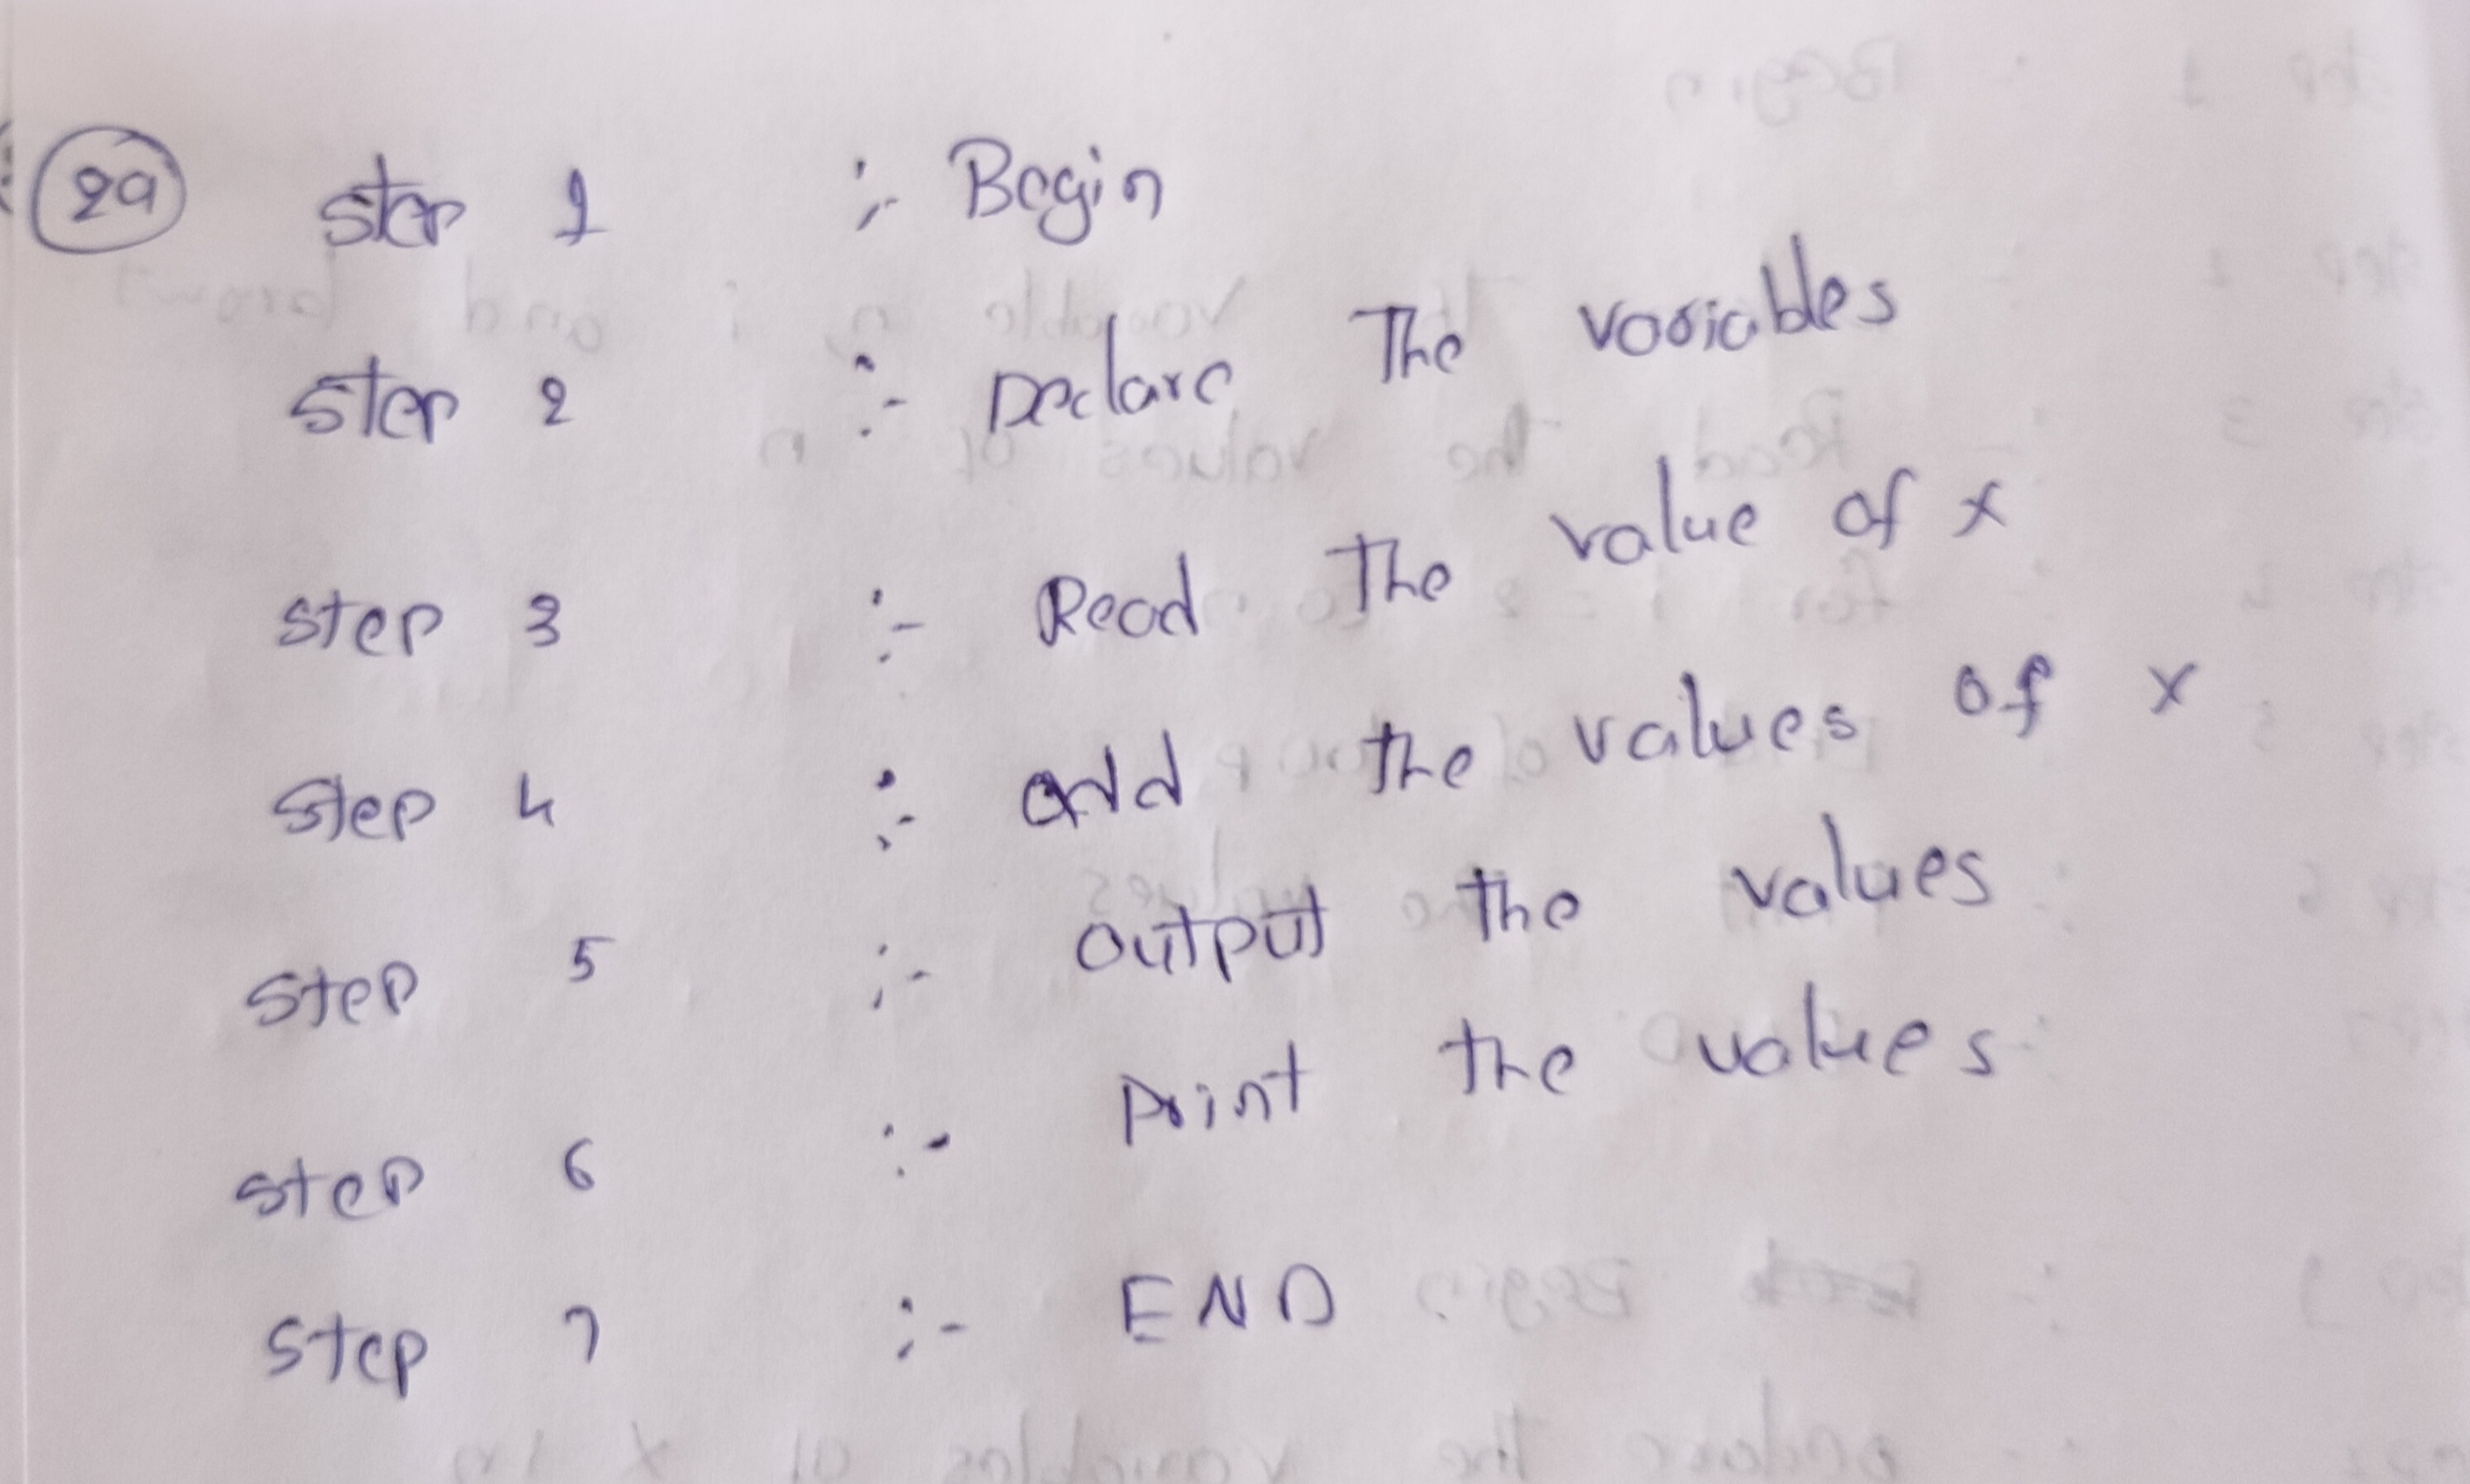 29 Step 1 :- Begin
Step 2 :- Declare The variables
Step 3 :- Read The value of x
Step 4 :- add the values of x
Step 5 :- output the values
Step 6 :- print the values
Step 7 :- END